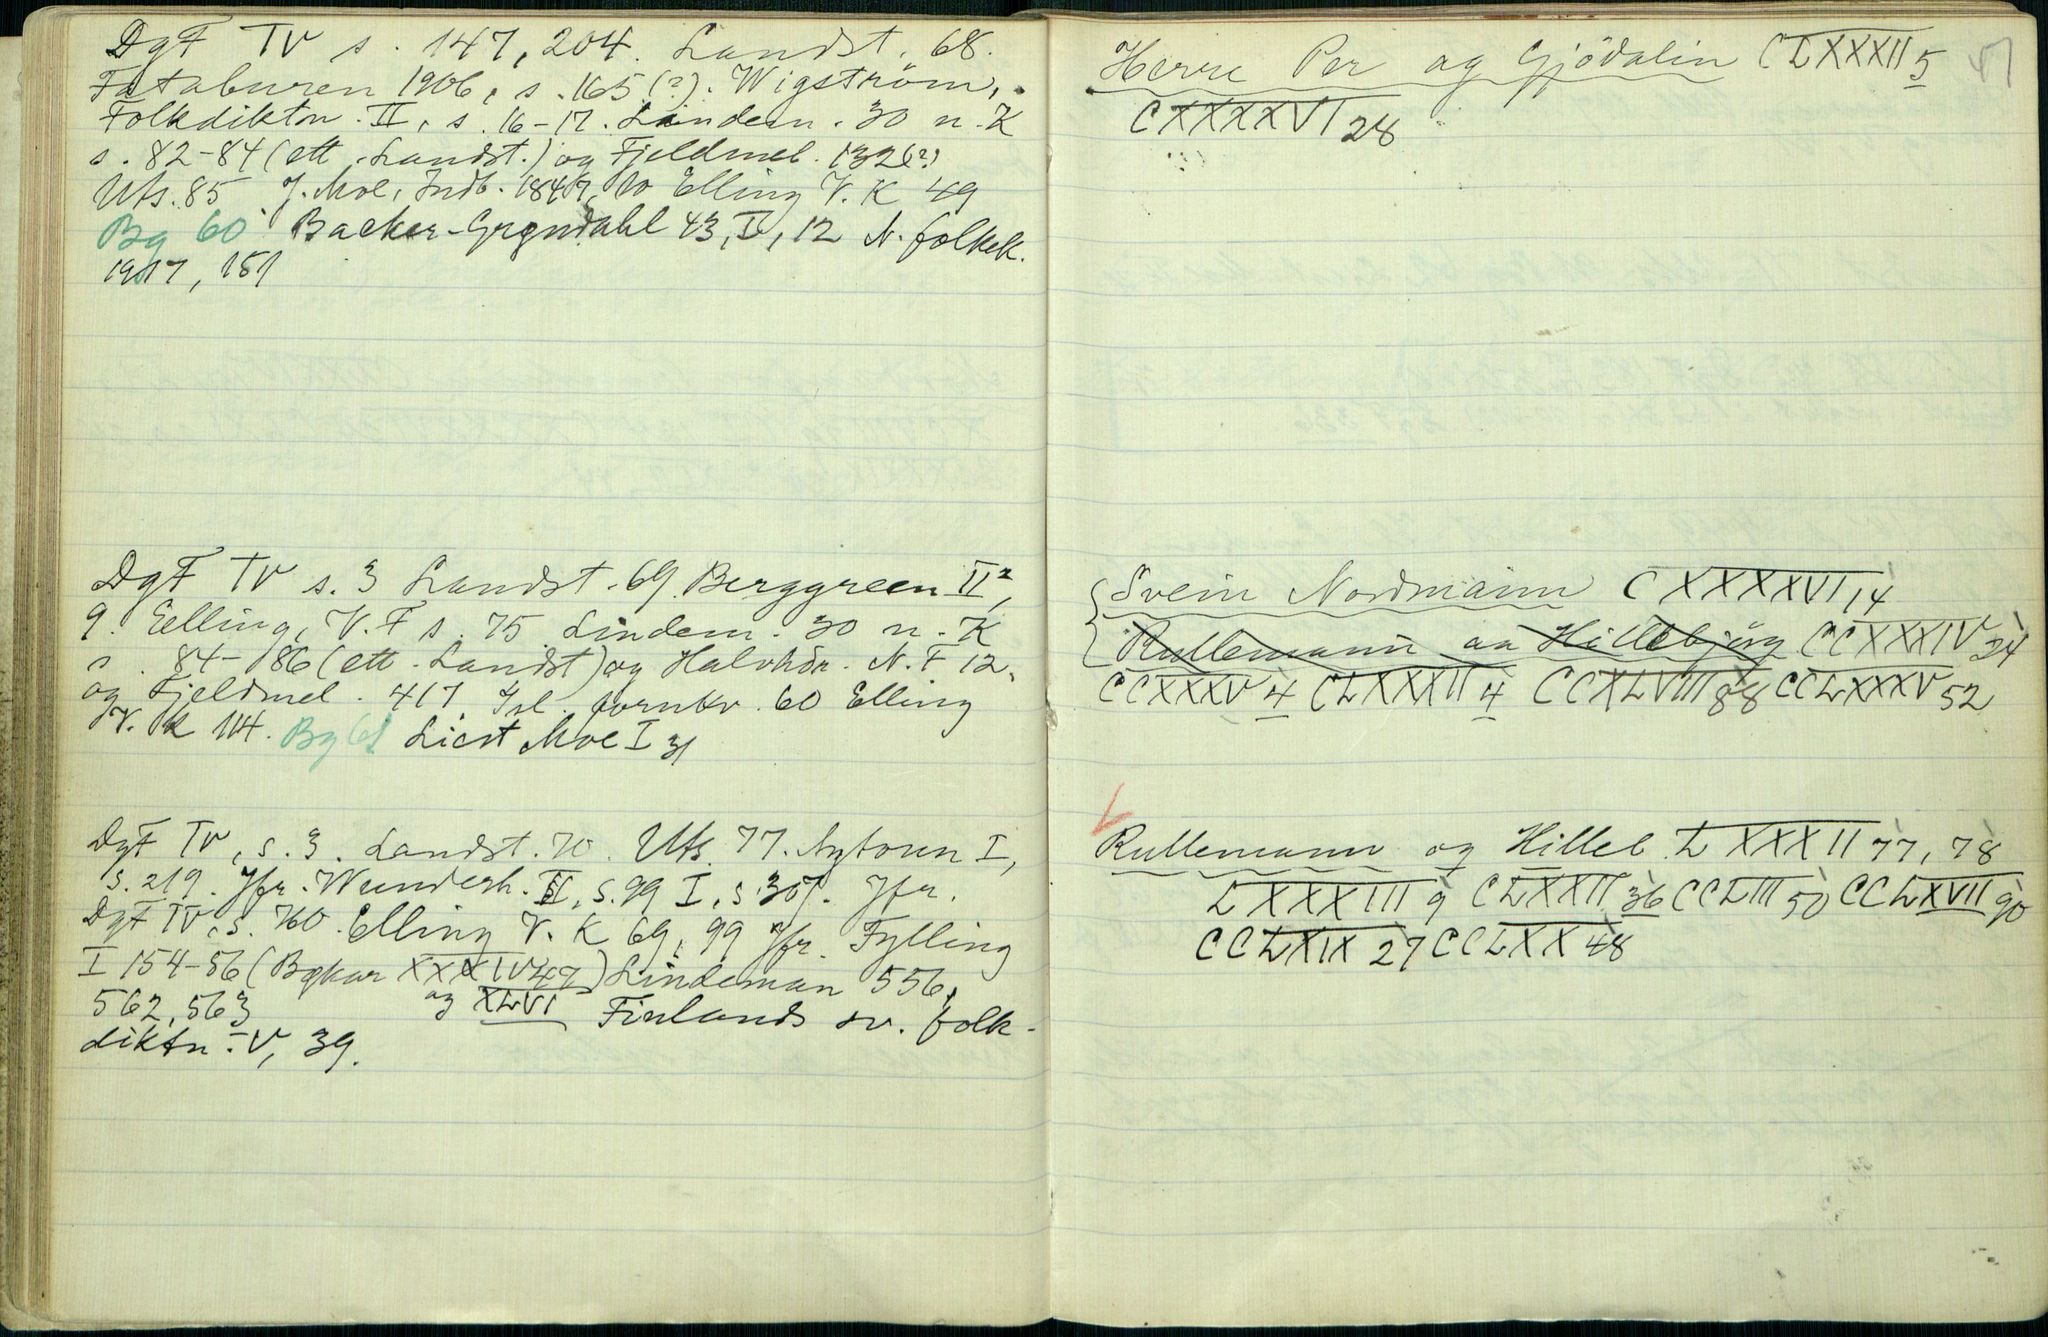 DgF IV s. 147, 204. Landst. 68.
Fataburen 1906, s. 165 (?). Wigström,
Folkdiktn. II, s. 16-17. Lindem. 30 n. K
s. 82-84 (ett. Landst.) og Fjeldmel. 132(?)
Uts. 85 J. Moe, Indb. 1847, 10 Elling V. K 49
Bg 60 Backer-Grøndahl 43, II, 12 N. folkek.
1917, 181
DgF IV s. 3 Landst. 69. Berggreen II²,
9. Elling, V. F s. 75 Lindem. 30 n. K
s. 84-86 (ett. Landst) og Halvhdr. N. F 12.
og Fjeldmel. 417. Isl. fornkv. 60 Elling
V. K 114. Bg 61 Liest Moe I 31
DgF IV, s. 3. Landst. 70. Uts. 77. Nytoun I,
s. 219. Jfr. Wunderh. II, s. 99 I, s. 307. Jfr.
DgF IV, s. 760. Elling V. K 69, 99 Jfr. Fylling
I 154-56 (Bøkar XXXIV 47) Lindeman 556,
og XLVI
562, 563 Finlands sv. folk-
diktn. V, 39.
Herre Per og Gjödalin CLXXXII 5
CXXXXVI 28
Svein Nordmann CXXXXVI 14
Rullemann aa Hillebjörg CCXXXIV 24
CCXXXV 4 CLXXXII 4 CCXLVIII 88 CCLXXXV 52
Rullemann og Hilleb. LXXXII 77, 78
LXXXIII 9 CLXXII 36 CCLIII 50 CCLXVII 90
CCLXIX 27 CCLXX 48